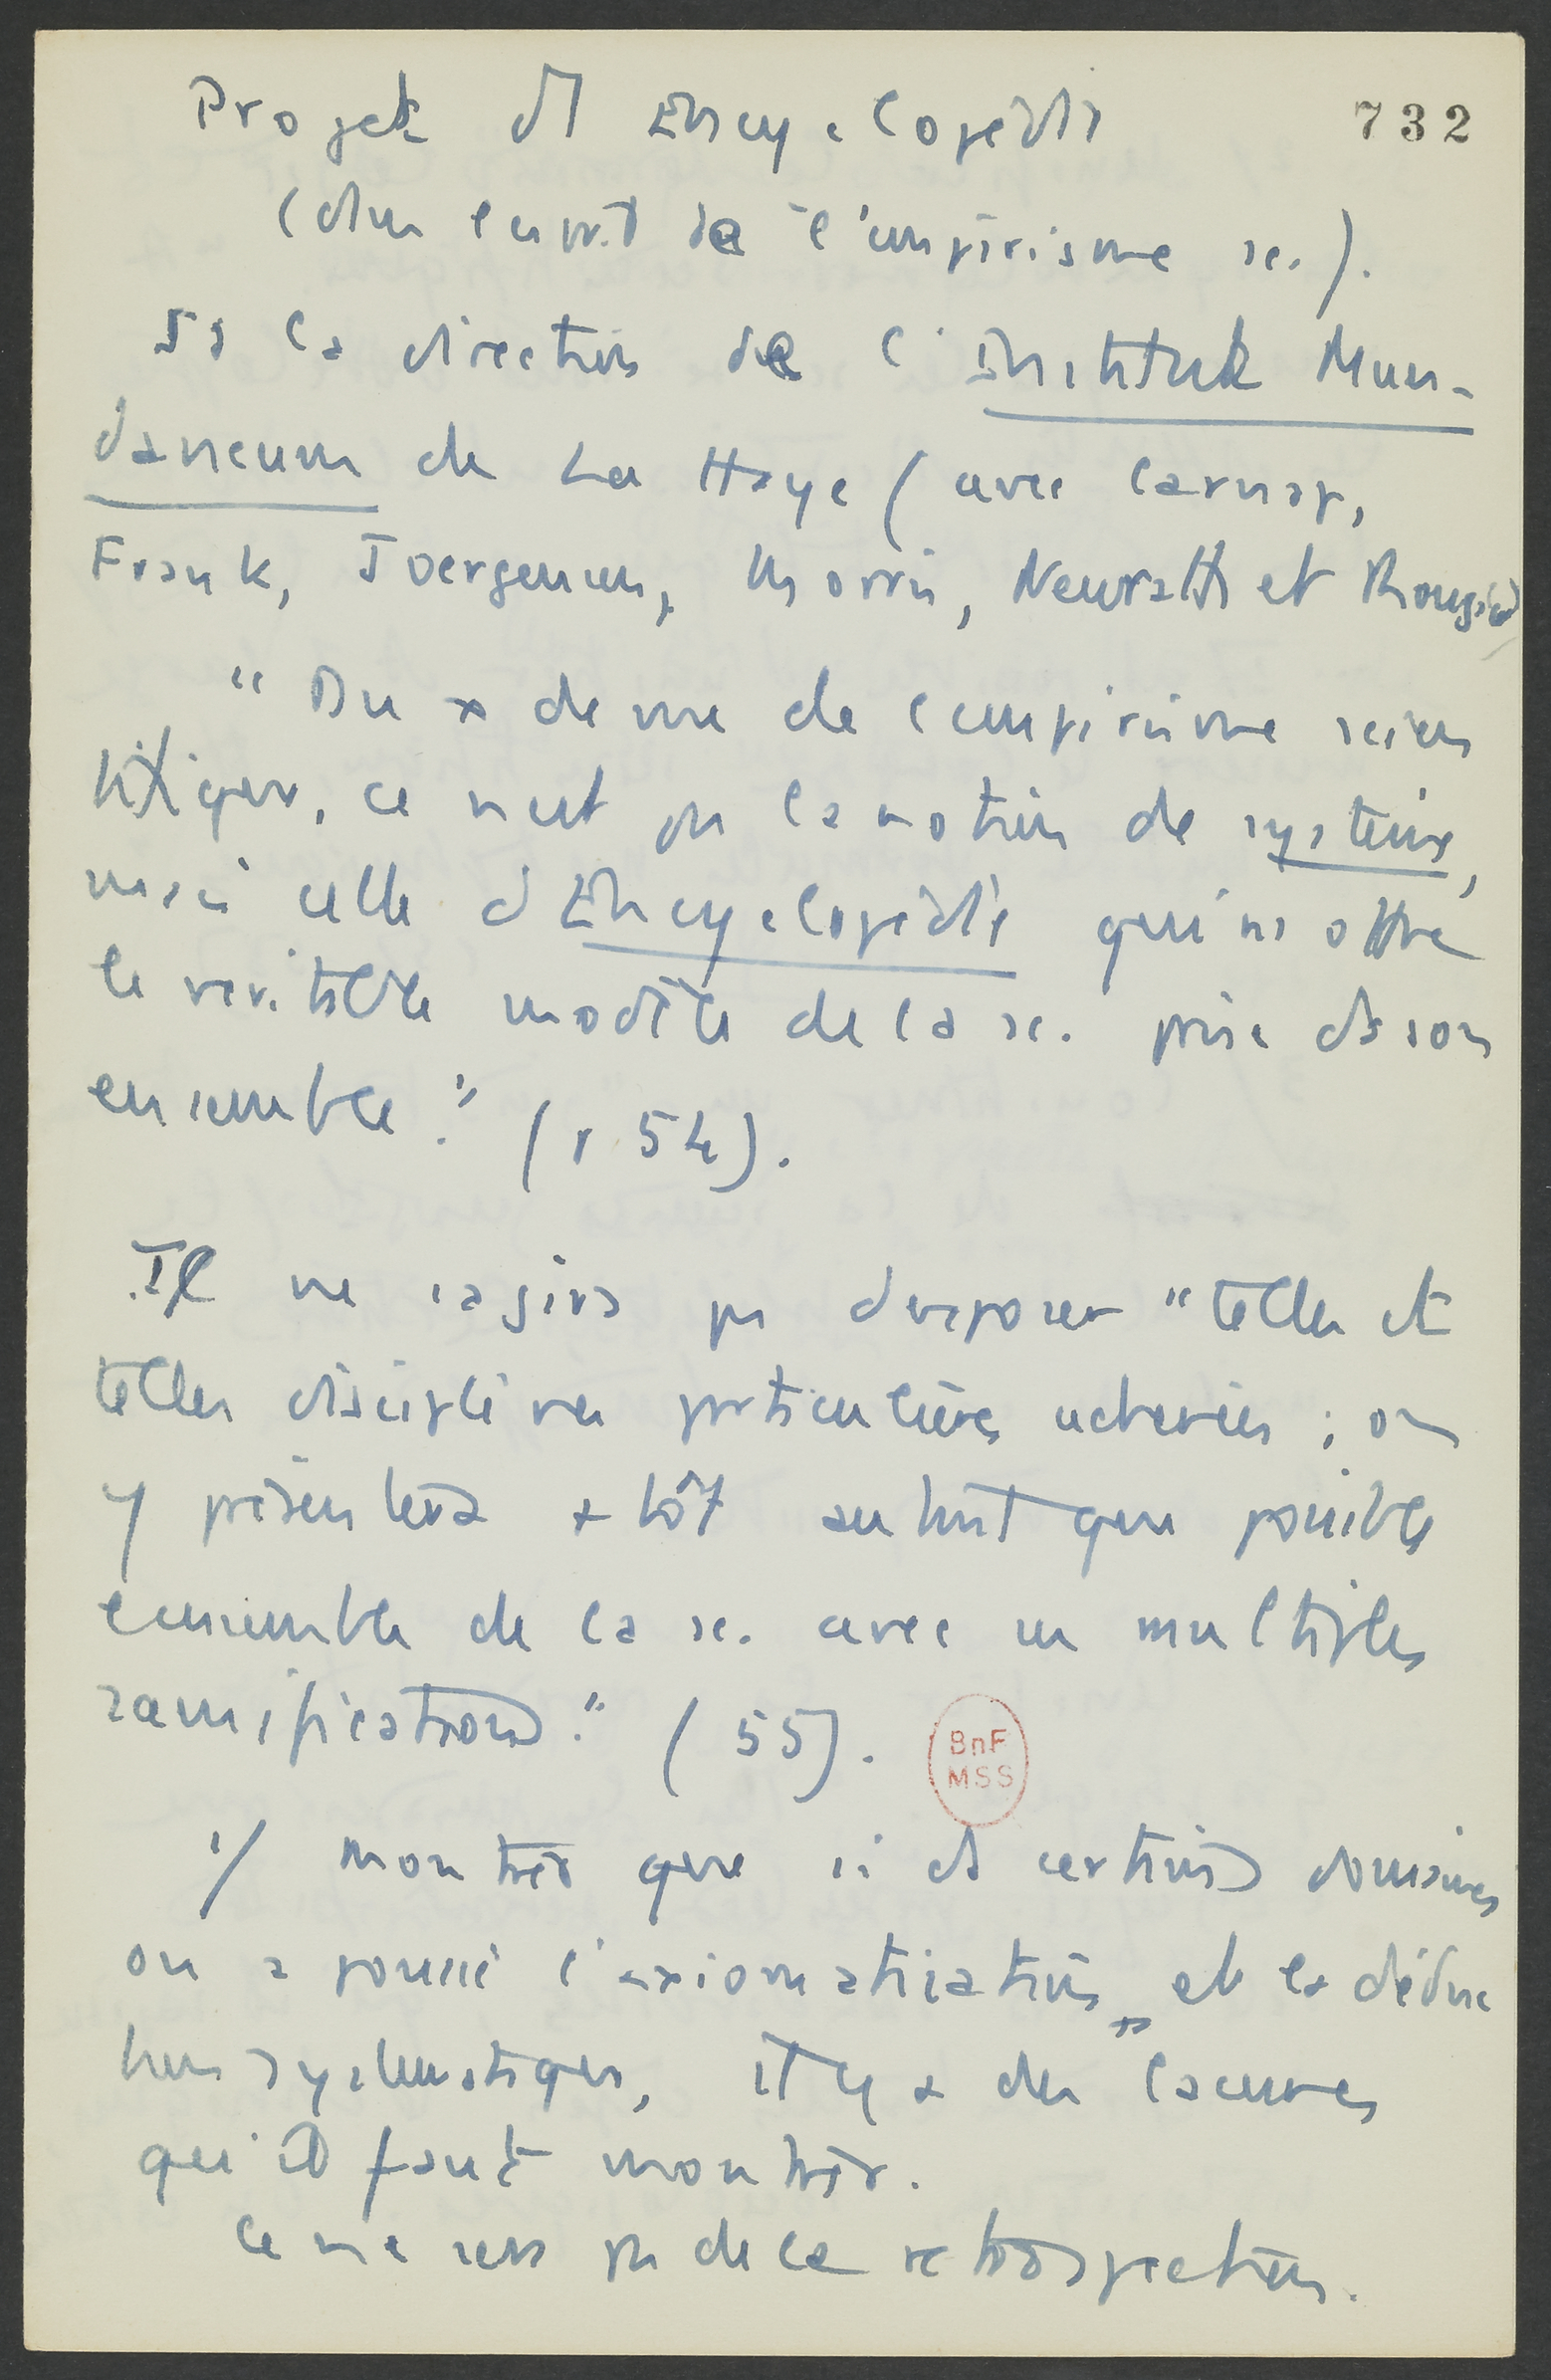 Projet d'Encyclopédie
732
(dans l'esprit de l'empirisme sc.).
ss la direction de l'Institut Mun-
daneum de La Haye (avec Carnap,
Frank, Joergensen, Morris, Neurath et Rougier)
"Du x de vue de l'empirisme scien
tifique, ce n'est pas la notion de système,
mais celle d'Encyclopédie qui ns offre
le véritable modèle de la sc. prise ds son
ensemble." (p 54).
Il ne s'agira pas d'exposer "telles et
telles disciplines particulières achevées ; on
y présentera + tôt autant que possible
l'ensemble de la sc. avec ses multiples
ramifications." (55).
BnF
MSS
1/ montrer que si ds certains domaines
on a poussé l'axiomatisation et la déduc
tion systématique, il y a des lacunes
qu'il faut montrer.
Ce ne sera pas de la rétrospection.